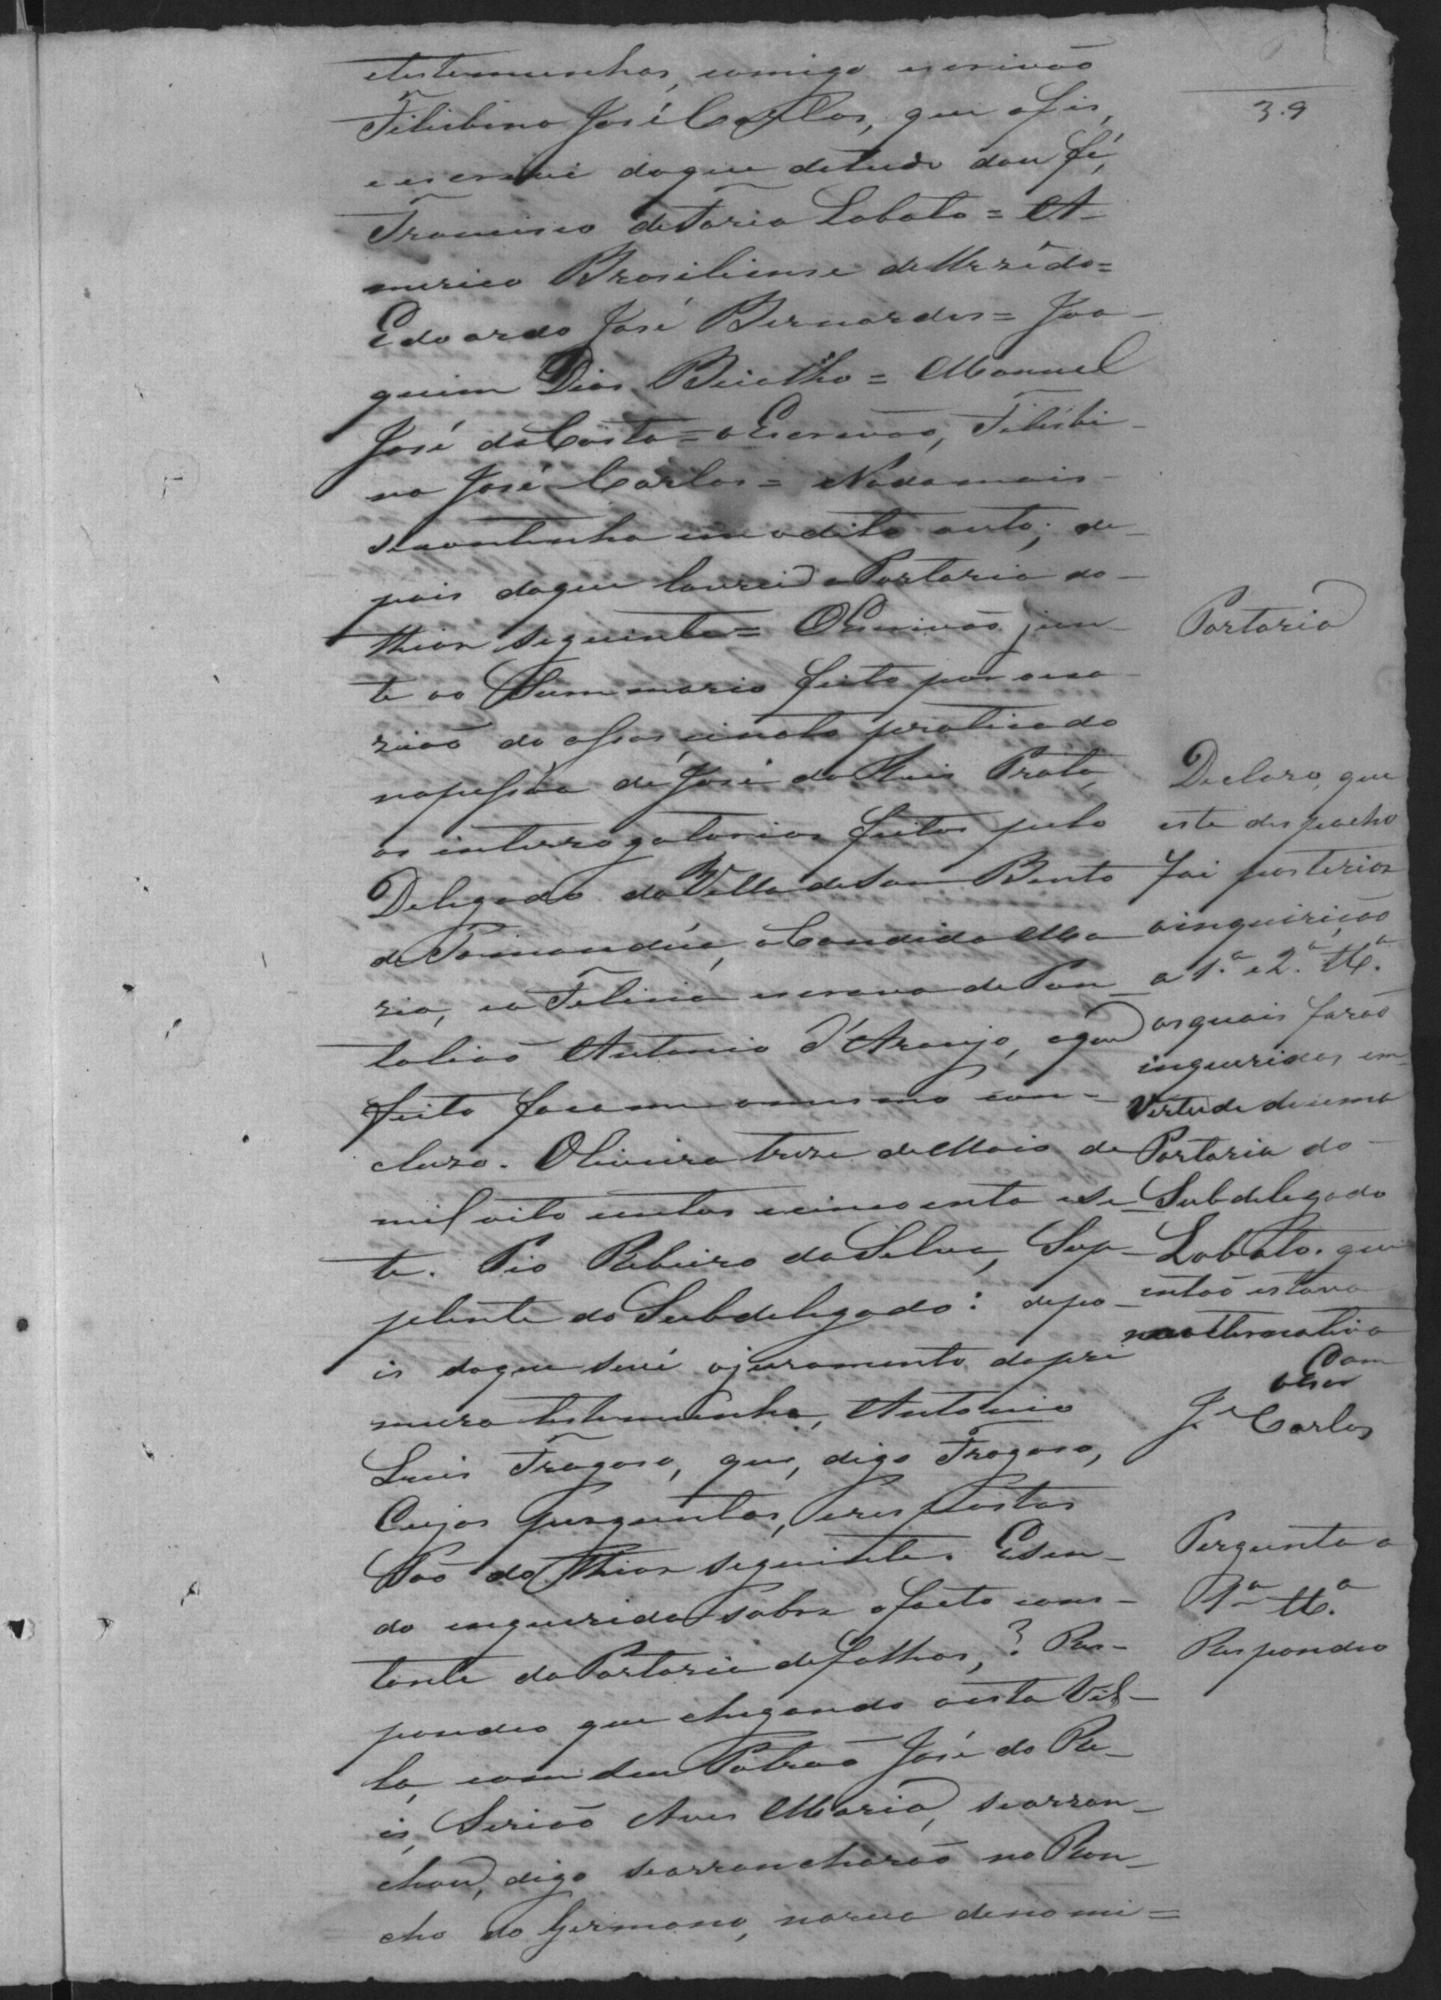 39
testemunhas, comigo escrivão
José Carlos, que o fis,
e escrevi doque detudo dou fé,
Francisco deFaria Lobato = A-
merico Brasiliense deMezedo=
Edoardo José Bernardes = Joa-
quim Dias = Manuel
José daCosta = oEscrivão,
no José Carlos = Nadamais
secontinha em odito auto; de-
pois doque lavrei a Portaria do
theor seguinte = OEscrivão jun-
te ao Summario feito por oca-
zião do assassinato praticado
napessôa de José do Reis Prata,
os interrogatorios feitos pelo
Delegado da Villa deSam Bento
de Tamanduá, a Candida Ma-
ria, ea Felicia escrava de Pan-
talião Antonio d'Araujo, e que
feito facame omesmo con-
cluzo. Oliveira treze deMaio de
mil oito centos ecincoenta e se-
te. Pio Ribeiro daSilva, Sup-
plente do Subdelegado: depo-
is doque segui ojuramento dapri
meira testemunha, Antonio
Luis Fragoso, que, digo Fragoso,
Cujas perguntas, erespostas
São do theor seguinte. Esen-
do enquerido sobre ofacto cons-
tante daPortaria defolhas, ? Res-
pondeo que chegando aesta Vil-
la, com seu Patrão José do Re-
is, Serião Aves Maria, searran-
chou, digo searrancharão no Ran-
cho do Germano, narua denomi=
Portaria
Declaro, que
este despacho
foi posterior
ainquirição
a 1.ª e 2.ª tt.ª
asquais forão
inqueridas em
Vertude deuma
Portaria do
Subdelegado
Lobato. que
então estava
J.e Carlos
Pergunta a
1.ª tt.ª
Respondeo